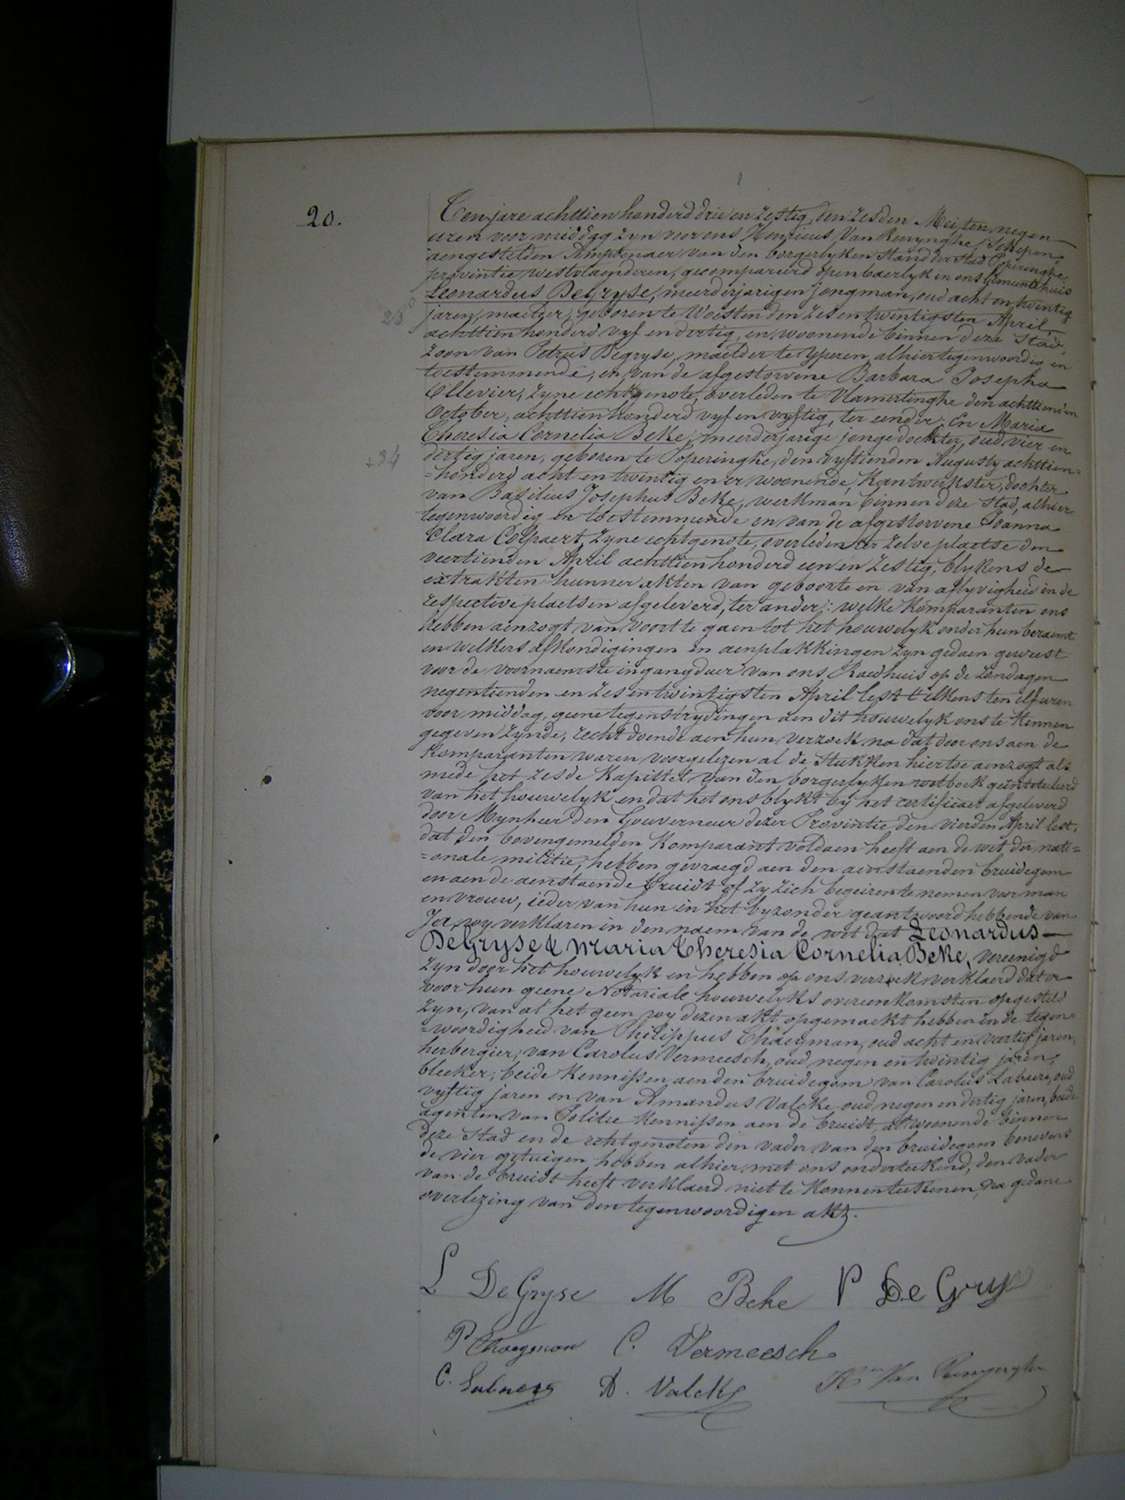 20.
Ten jare achttien honderd drie en zestig, den zesden Mei, ten negen
uren voor middag zyn voor ons Henricus Van Renynghe, Schepen,
aengestelden Amptenaer van den borgerlyken Stand der Stad Poperinghe,
provintie westvlaenderen, gecompareerd openbaerlyk in ons Gemeentehuis
Leonardus DeGryse, meerderjarigen jongman, oud acht en twintig
28
jaren, maelder, geboren te Woesten den zes en twintigsten April
achttien honderd vyf en dertig, en woonende binnen deze Stad,
zoon van Petrus Degryse, maelder te Yperen, alhier tegenwoordig en
toestemmende, en van de afgestorvene Barbara Josepha
Ollevier, zyne echtgenote, overleden te Vlamertinghe den achttienden
October, achttien honderd vyf en vyftig, ter eender; En Maria
Theresia Cornelia Beke, meerderjarige jonge dochter, oud vier en
+34
dertig jaren, geboren te Poperinghe, den vyftienden Augusty achttien=
=honderd acht en twintig en er woonende, Kantwerkster, dochter
van Basilius Josephus Beke, werkman binnen deze Stad, alhier
tegenwoordig en toestemmende en van de afgestorvene Joanna
Clara Colpaert, zyne echtgenote, overleden ter zelve plaetse den
veertienden April achttien honderd een en zestig, blykens de
extrakten hunner akten van geboorte en van aflyvigheid in de
respective plaetsen afgeleverd, ter ander: welke Komparanten ons
hebben aenzogt van voort te gaen tot het houwelyk onder hun beraemt
en welkers afkondigingen en aenplakkingen zyn gedaen geweest
voor de voornaemste ingangdeur van ons Raedhuis op de zondagen
negentienden en zes en twintigsten April lest telkens ten elf uren
voor middag, geene tegenstrydingen aen dit houwelyk ons te Kennen
gegeven zynde, recht doende aen hun verzoek na dat door ons aen de
Komparanten waren voorgelezen al de Stukken hiertoe aenzogt als
mede het zesde Kapittel van den borgerlyken wetboek geïntituleerd
van het houwelyk en dat het ons blykt by het certificaet afgeleverd
door Mynheer den Gouverneur dezer Provintie, den vierden April lest,
dat den bovengemelden Komparant voldaen heeft aen de wet der nati=
=onale militie, hebben gevraegd aen den aenstaenden bruidegom
en aen de aenstaende bruidt of zy zich begeiren te nemen voor man
en vrouw, ieder van hun in het byzonder geantwoord hebbende van
Ja, wy verklaren in den naem van de wet dat Leonardus
DeGryse & Maria Theresia Cornelia Beke, vereenigd
zyn door het houwelyk en hebben op ons verzoek verklaerd dat er
voor hun geene Notariale houwelyks overeenkomsten opgesteld
zyn, van al het geen wy dezen akt opgemaekt hebben in de tegen=
=woordigheid van Philippus Chaegman, oud acht en veertig jaren,
herbergier, van Carolus Vermeesch, oud negen en twintig jaren,
bleeker, beide Kennissen aen den bruidegom van Carolus Labaere, oud
vyftig jaren en van Amandus Valcke, oud negen en dertig jaren, beide
agenten van Politie Kennissen aen de bruidt al woonende binnen
deze Stad en de echtgenoten den vader van den bruidegom benevens
de vier getuigen hebben alhier met ons onderteekend, den vader
van de bruidt heeft verklaerd niet te Konnen teekenen, na gedane
overlezing van den tegenwoordigen akt.
L DeGryse M Beke P De Gryse
P C. Vermeesch
C. A. Valcke Van Renynghe